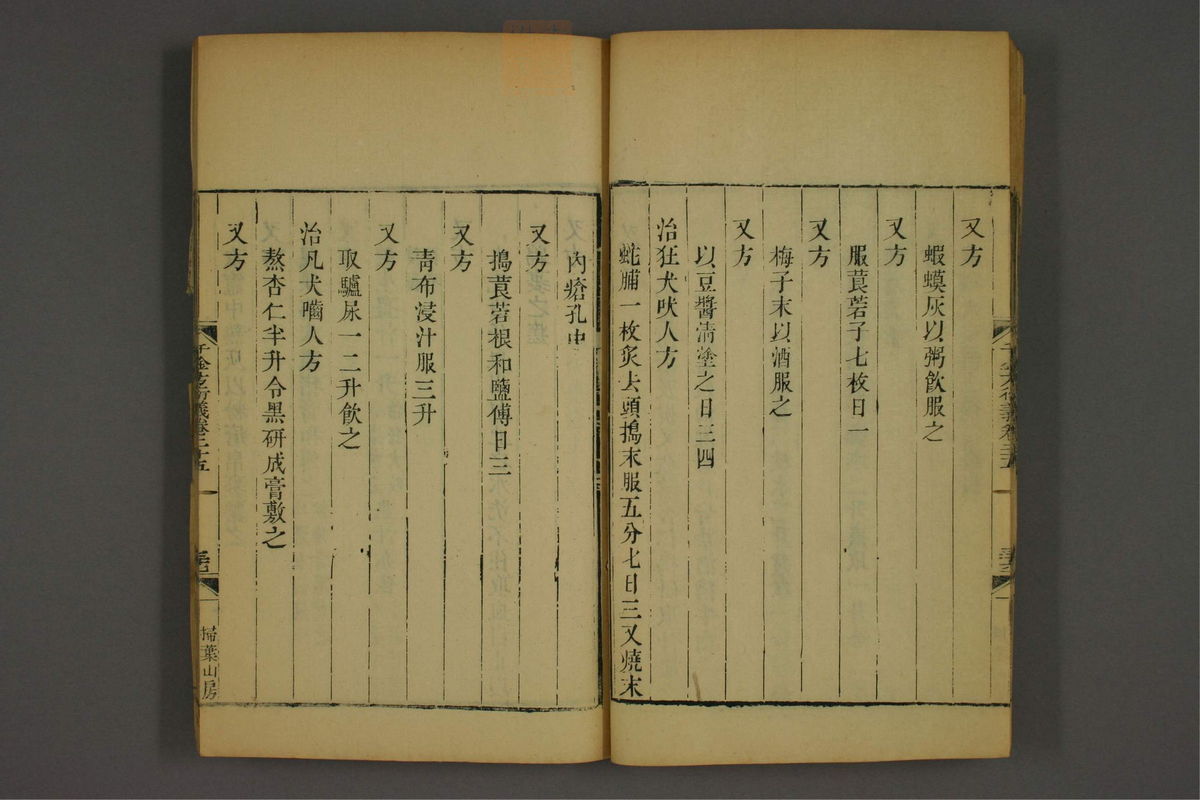 又方
蝦蟆灰以粥飲服之
又方
服莨菪子七枚日一
又方
梅子末以酒服之
又方
以豆醬淸塗之日三四
治狂犬吠人方
蛇脯一枚炙去頭搗末服五分匕日三又燒末
內瘡孔中
又方
搗莨菪根和鹽傅日三
又方
靑布浸汁服三升
又方
取驢尿一二升飮之
治凡犬囓人方
熬杏仁半升令黑研成膏敷之
又方
千金方衍義卷二十五
掃葉山房